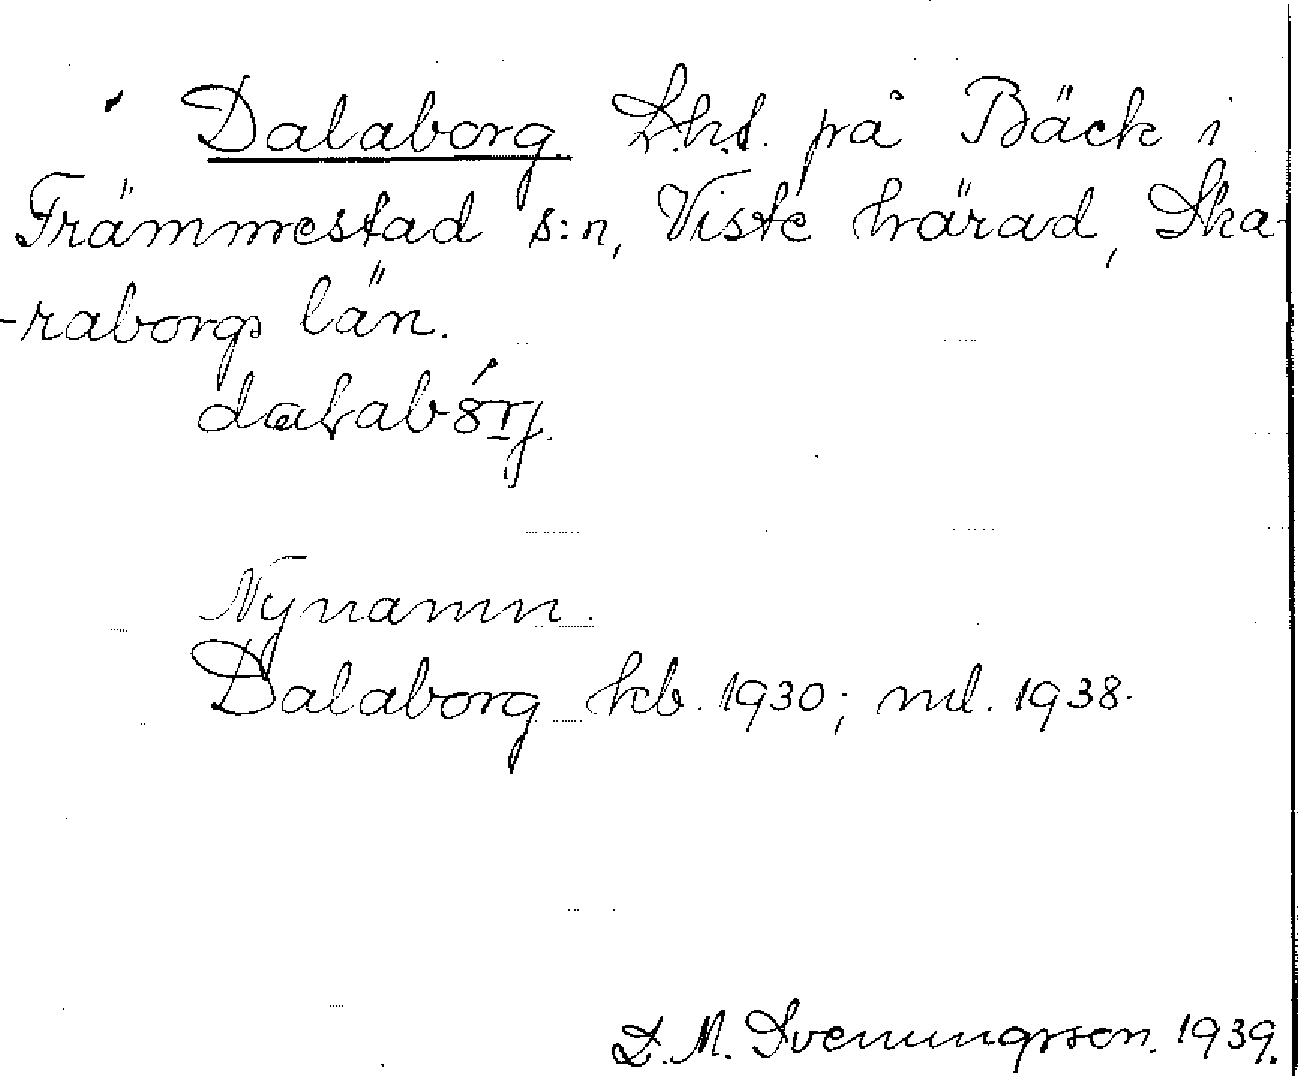 Dalaborg. Lhs. på Bäck i
Främmestad s:n, Viste härad, Ska-
-raborgs län.
Nynamn.
Dalaborg kb. 1930; ml. 1938.
D. M. Svenungsson. 1939.